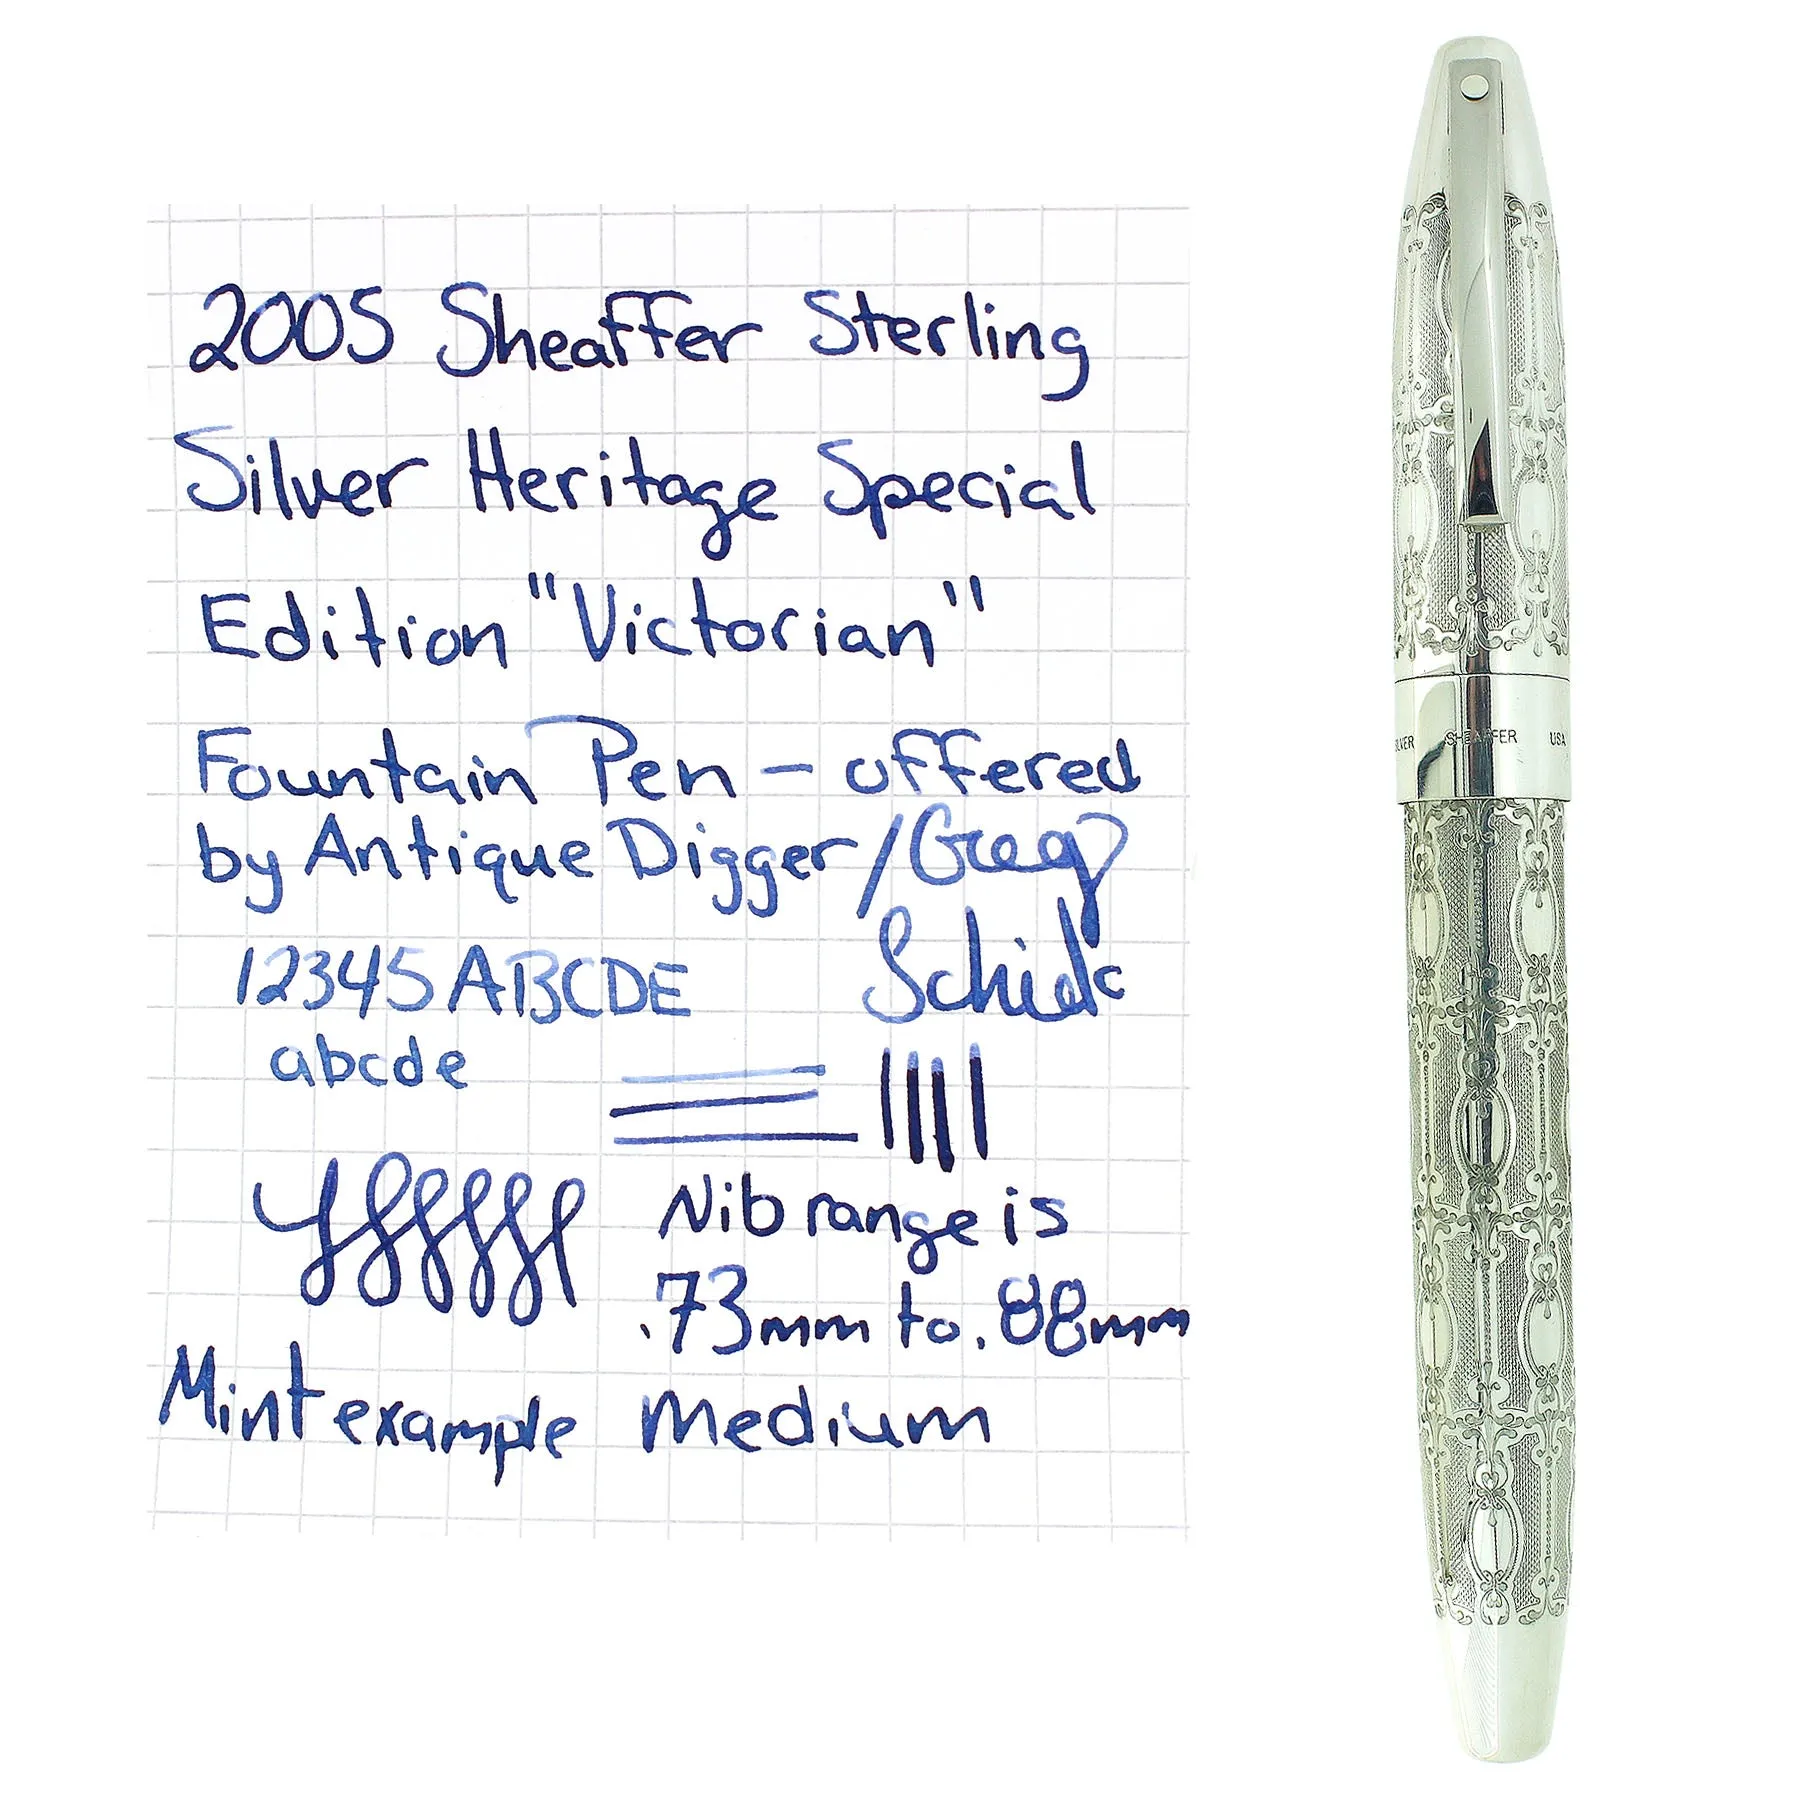 2005 Sheaffer Sterling
Silver Heritage Special
Edition "Victorian"
Fountain Pen - offered
by Antique Digger/Greg
12345 ABCDE
abcde
Nib range is
.73mm to .88mm
Mint example Medium
SHEAFFER USA